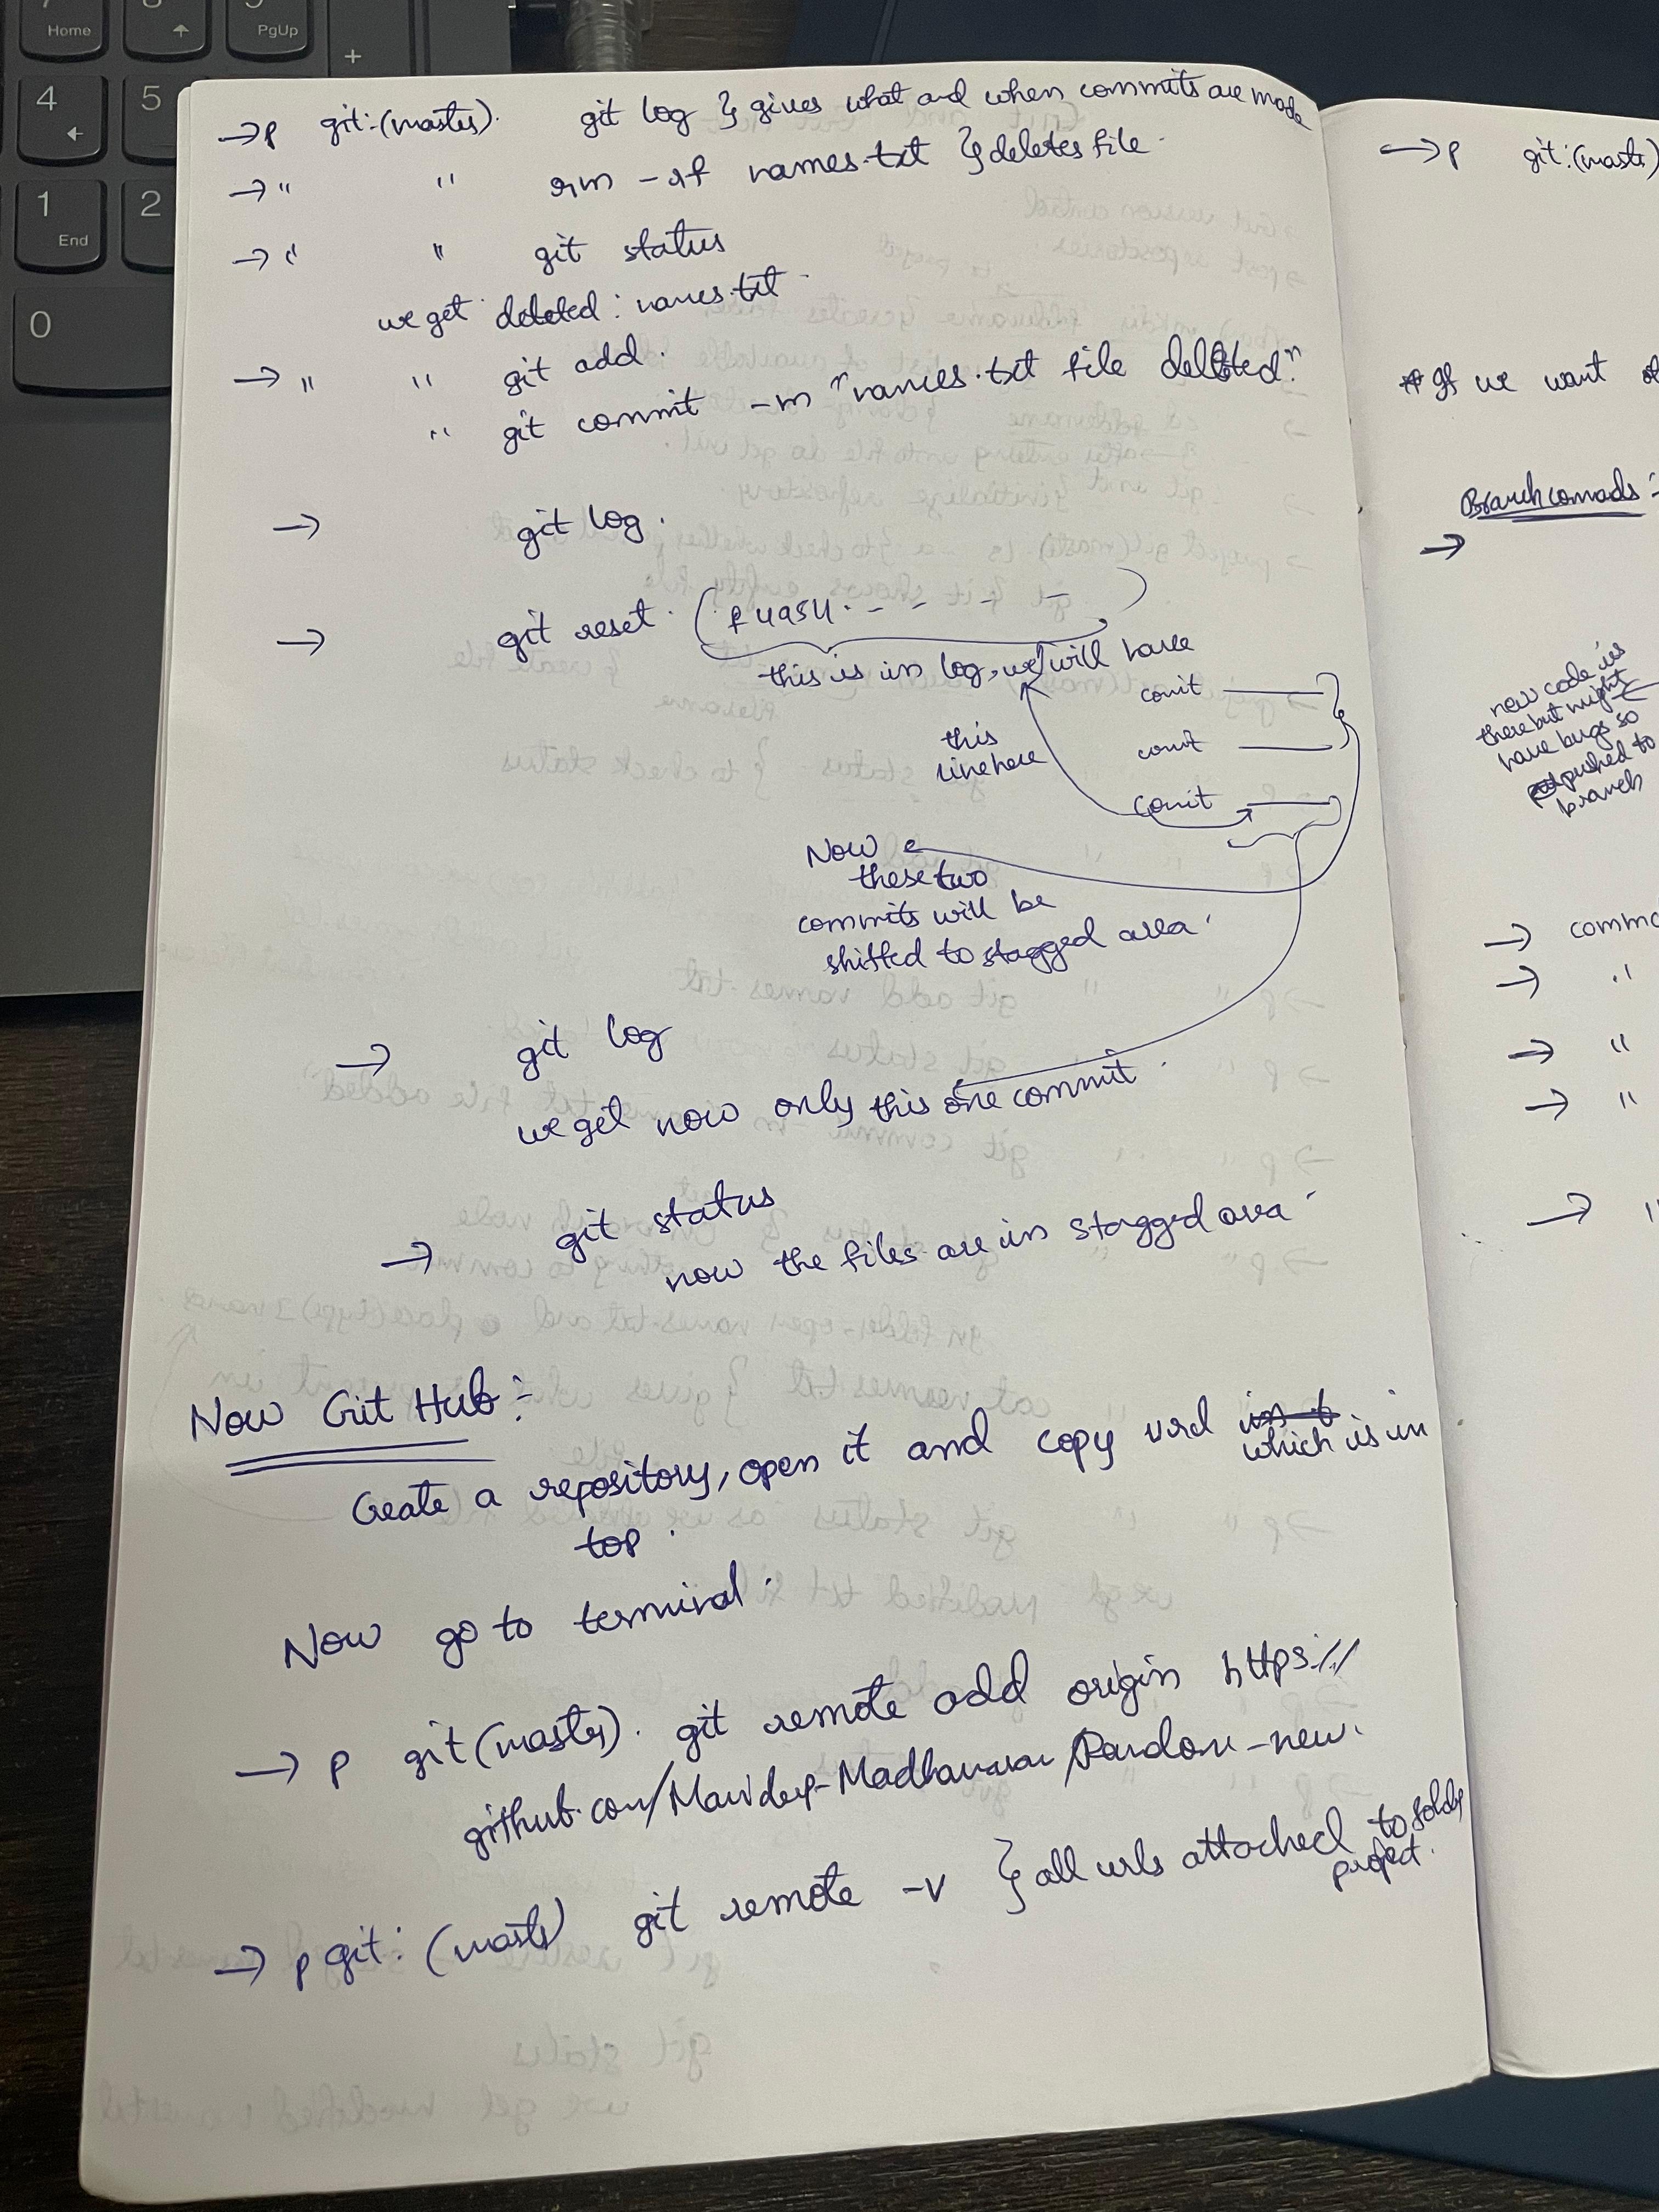 4
5
1
End
2
0
Home
PgUp
+
→ p git:(master). git log } gives what and when commits are made
→ " " rm -rf names.txt } deletes file.
→ " " git status
we get deleted: names.txt.
→ " " git add.
" git commit -m "names.txt file deleted".
→ git log.
→ git reset. ( - - - - )
this is in log, we will have
comit
this
line here
comit
comit
Now
these two
commits will be
shifted to stagged area.
→ git log
we get now only this one commit.
→ git status
now the files are in stagged area.
Now Git Hub:-
Create a repository, open it and copy url which is in
top.
Now go to terminal.
→ p git(master). git remote add origin https://
github.com/
→ p git:(master) git remote -v } all urls attached to folder
project.
→ p git:(master)
* If we want
Branch comads:-
→
new code is
there but might
have bugs so
pushed to
branch
→ comma
→ "
→ "
→ "
→ "